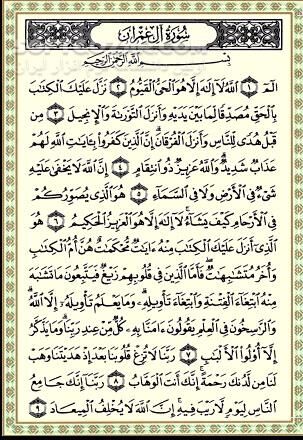 سُورَةُ آلِ عِمْرَان
بِسْمِ اللَّهِ الرَّحْمَٰنِ الرَّحِيمِ
الٓمٓ ۝١ اللَّهُ لَا إِلَٰهَ إِلَّا هُوَ الْحَيُّ الْقَيُّومُ ۝٢ نَزَّلَ عَلَيْكَ الْكِتَابَ
بِالْحَقِّ مُصَدِّقًا لِمَا بَيْنَ يَدَيْهِ وَأَنْزَلَ التَّوْرَىٰةَ وَالْإِنْجِيلَ ۝٣ مِنْ
قَبْلُ هُدًى لِلنَّاسِ وَأَنْزَلَ الْفُرْقَانَ إِنَّ الَّذِينَ كَفَرُوا بِآيَاتِ اللَّهِ لَهُمْ
عَذَابٌ شَدِيدٌ وَاللَّهُ عَزِيزٌ ذُو انْتِقَامٍ ۝٤ إِنَّ اللَّهَ لَا يَخْفَىٰ عَلَيْهِ
شَيْءٌ فِي الْأَرْضِ وَلَا فِي السَّمَاءِ ۝٥ هُوَ الَّذِي يُصَوِّرُكُمْ
فِي الْأَرْحَامِ كَيْفَ يَشَاءُ لَا إِلَٰهَ إِلَّا هُوَ الْعَزِيزُ الْحَكِيمُ ۝٦ هُوَ
الَّذِي أَنْزَلَ عَلَيْكَ الْكِتَابَ مِنْهُ آيَاتٌ مُحْكَمَاتٌ هُنَّ أُمُّ الْكِتَابِ
وَأُخَرُ مُتَشَابِهَاتٌ فَأَمَّا الَّذِينَ فِي قُلُوبِهِمْ زَيْغٌ فَيَتَّبِعُونَ مَا تَشَابَهَ
مِنْهُ ابْتِغَاءَ الْفِتْنَةِ وَابْتِغَاءَ تَأْوِيلِهِ وَمَا يَعْلَمُ تَأْوِيلَهُ إِلَّا اللَّهُ
وَالرَّاسِخُونَ فِي الْعِلْمِ يَقُولُونَ آمَنَّا بِهِ كُلٌّ مِنْ عِنْدِ رَبِّنَا وَمَا يَذَّكَّرُ
إِلَّا أُولُو الْأَلْبَابِ ۝٧ رَبَّنَا لَا تُزِغْ قُلُوبَنَا بَعْدَ إِذْ هَدَيْتَنَا وَهَبْ
لَنَا مِنْ لَدُنْكَ رَحْمَةً إِنَّكَ أَنْتَ الْوَهَّابُ ۝٨ رَبَّنَا إِنَّكَ جَامِعُ
النَّاسِ لِيَوْمٍ لَا رَيْبَ فِيهِ إِنَّ اللَّهَ لَا يُخْلِفُ الْمِيعَادَ ۝٩